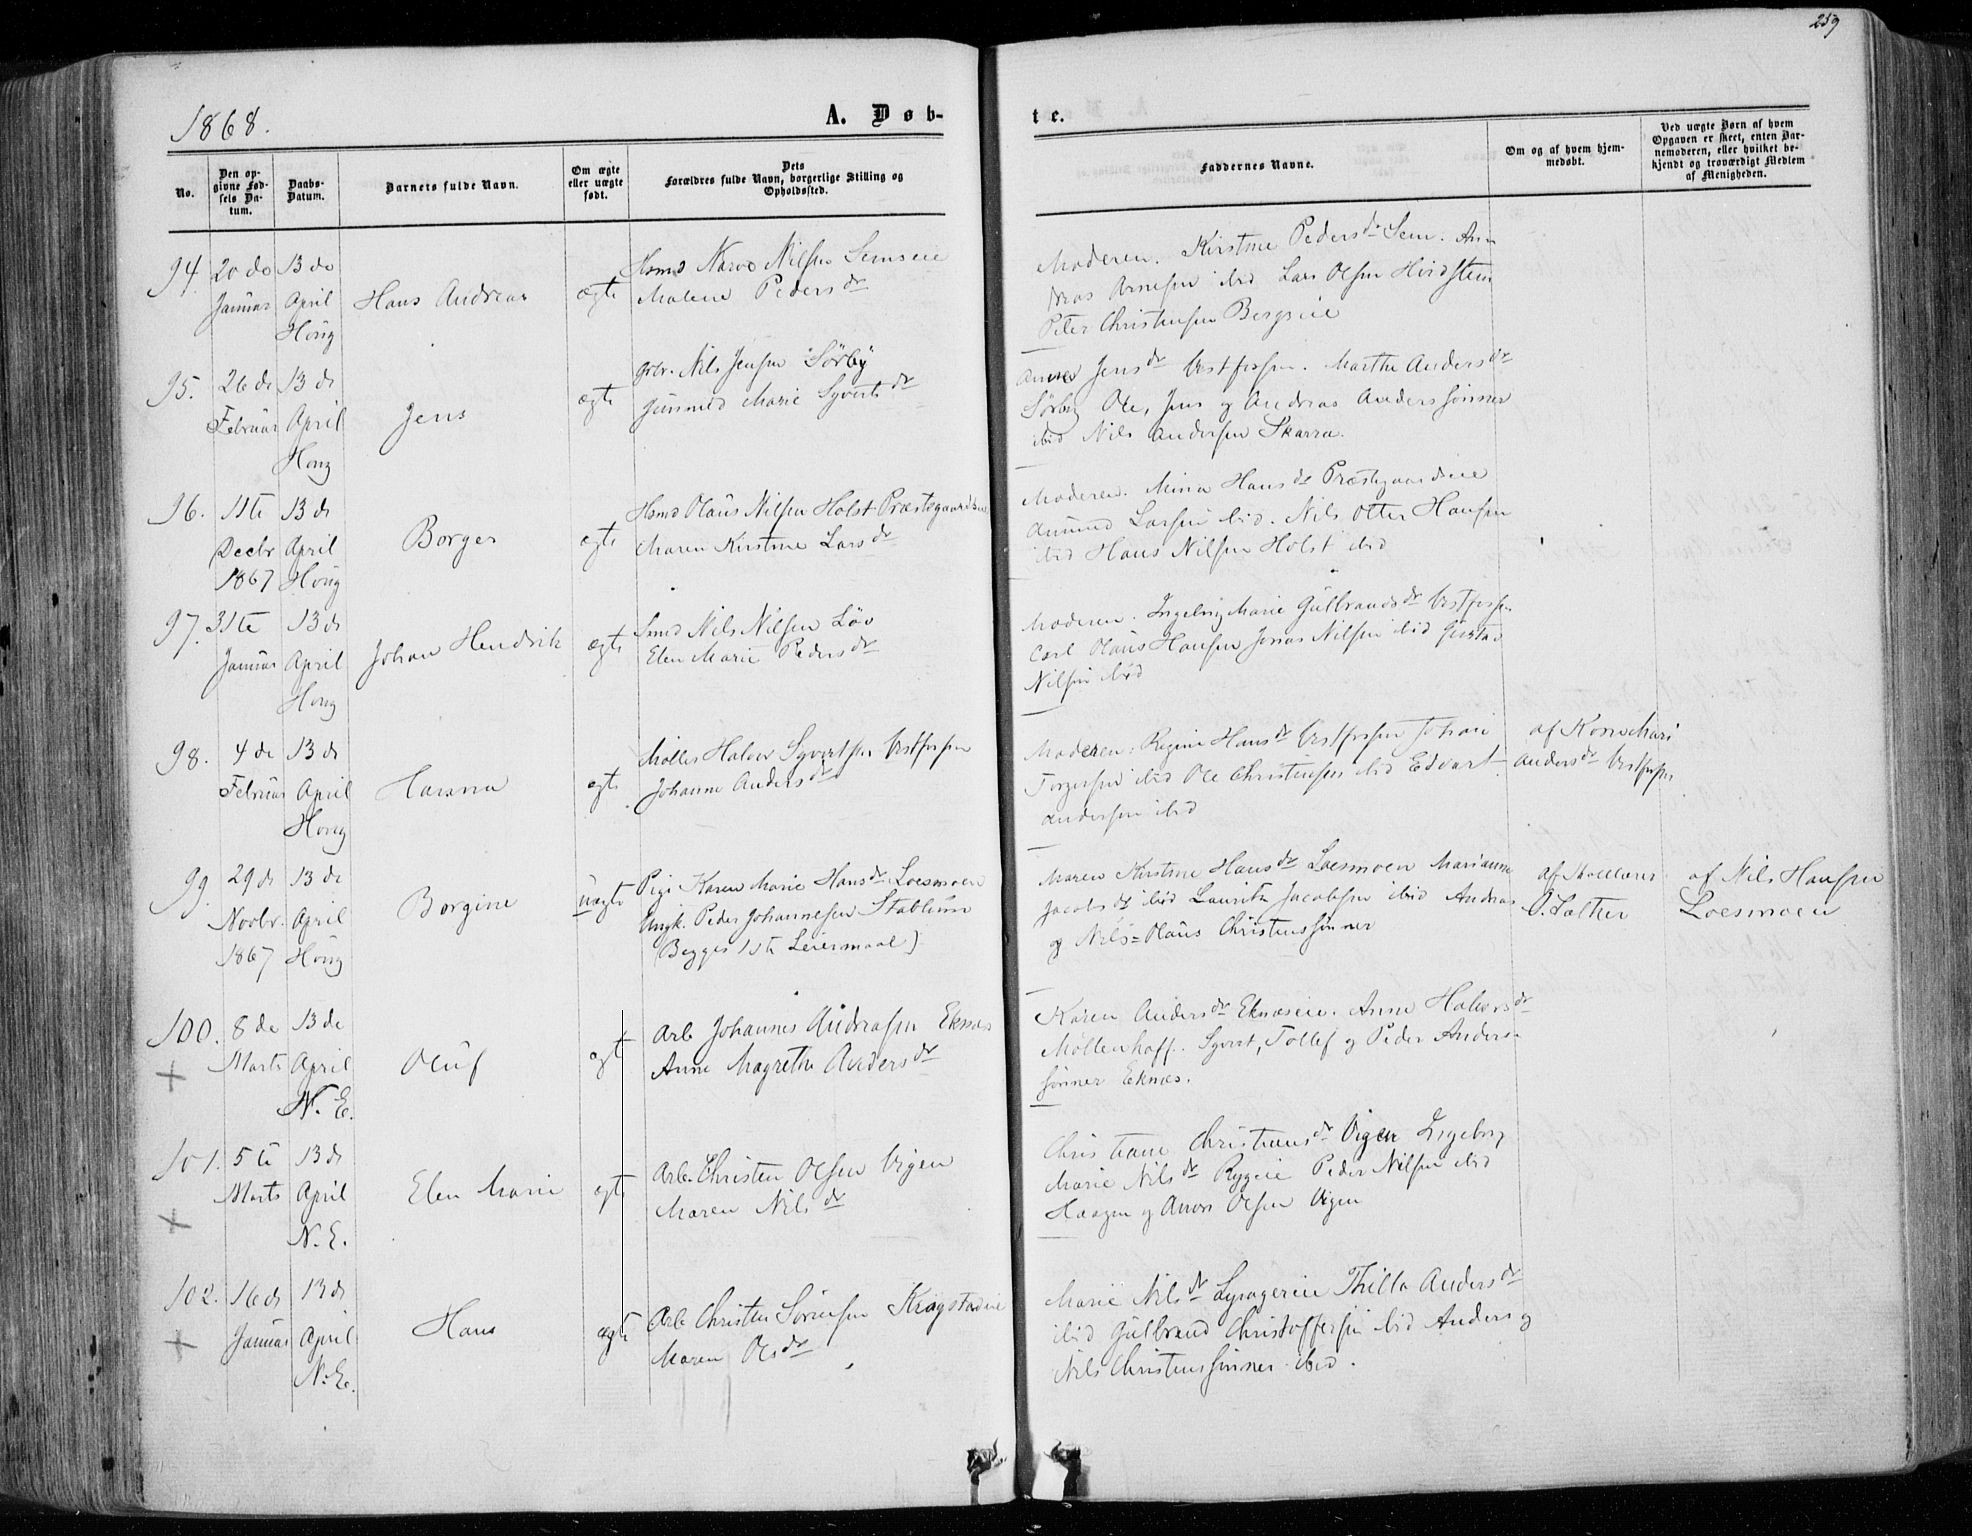 259
1868.
A. Døb-
te.
No.
Den opgivne Fødsels Datum.
Daabs-Datum.
Barnets fulde Navn.
Om ægte eller uægte født.
Dets Forældres fulde Navn, borgerlige Stilling og Opholdssted.
Faddernes Navne.
Om og af hvem hjemmedøbt.
Ved uægte Børn af hvem Opgaven er skeet, enten Barnemoderen, eller hvilket bekjendt og troværdigt Medlem af Menigheden.
94. 20de Januar
13de April Houg
Hans Andreas
ægte
Hsmd Narve Nilsen Semseie
Malene Pedersdr
Moderen. Kirstine Pedersdr Sem. An-
dreas Arnesen ibid Lars Olsen Hvidsteen
Peter Christensen Bergseie
95. 26de Februar
13de April Houg
Jens
ægte
Grbr. Nils Jensen Sörby
Gunnild Marie Syvertsdr
Anne Jensdr Vestfossen. Marthe Andersdr
Sörby Ole, Jens og Andreas Anderssönner
ibid Nils Andersen Skarra.
96. 11te Decbr 1867
13de April Houg
Borger
ægte
Hsmd Olaus Nilsen Holst Præstegaardseie
Maren Kirstine Larsdr
Moderen. Mina Hansdr Præstegaardseie
Amund Larsen ibid. Nils Otter Hansen
ibid Hans Nilsen Holst ibid
97. 31te Januar
13de April Houg
Johan Hendrik
ægte
Smd Nils Nilsen Löv
Elen Marie Pedersdr
Moderen. Ingeborg Marie Gulbrandsdr Vestfossen
Carl Olaus Hansen Jonas Nilsen ibid Gustav
Nilsen ibid
98. 4de Februar
13de April Houg
Hanna
ægte
Möller Halvor Syvertsen Vestfossen
Johanne Andersdr
Moderen. Regine Hansdr Vestfossen Johan
Torgersen ibid Ole Christensen ibid Edvart
Andersen ibid
af Kone Mari
Andersdr Vestfossen
99. 29de Novbr. 1867
13de April Houg
Borgine
uægte
Pige Karen Marie Hansdr Loesmoen
Ungk. Peder Johannesen Stablum
(Begges 1ste Leiermaal)
Maren Kirstine Hansdr Loesmoen Marianne
Jacobsdr ibid Lauritz Jacobsen ibid Andreas
og Nils Olaus Christenssönner
O. Sæther
af Nils Hansen
Loesmoen
100. 8de Marts
13de April N. E.
Oluf
ægt
Arb. Johannes Andreasen Eknæs
Anne Magrethe Andersdr
Karen Andersdr Eknæseie. Anne Halvorsdr
Möllenhoff. Syvert, Tollef og Peder Anders-
sönner Eknæs.
101. 5te Marts
13de April N. E.
Elen Marie
ægte
Arb. Christen Olsen Vigen
Maren Nilsdr
Christiane Christiansdr Vigen Ingeborg
Marie Nilsdr Rygeie Peder Nilsen ibid
Haagen og Anders Olsen Vigen
102. 16de Januar
13de April N. E.
Hans
ægte
Arb. Christen Sörensen Kragstadeie
Maren Olsdr
Marie Nilsdr Thilla Andersdr
ibid Gulbrand Christoffersen ibid Anders og
Nils Christenssönner ibid.